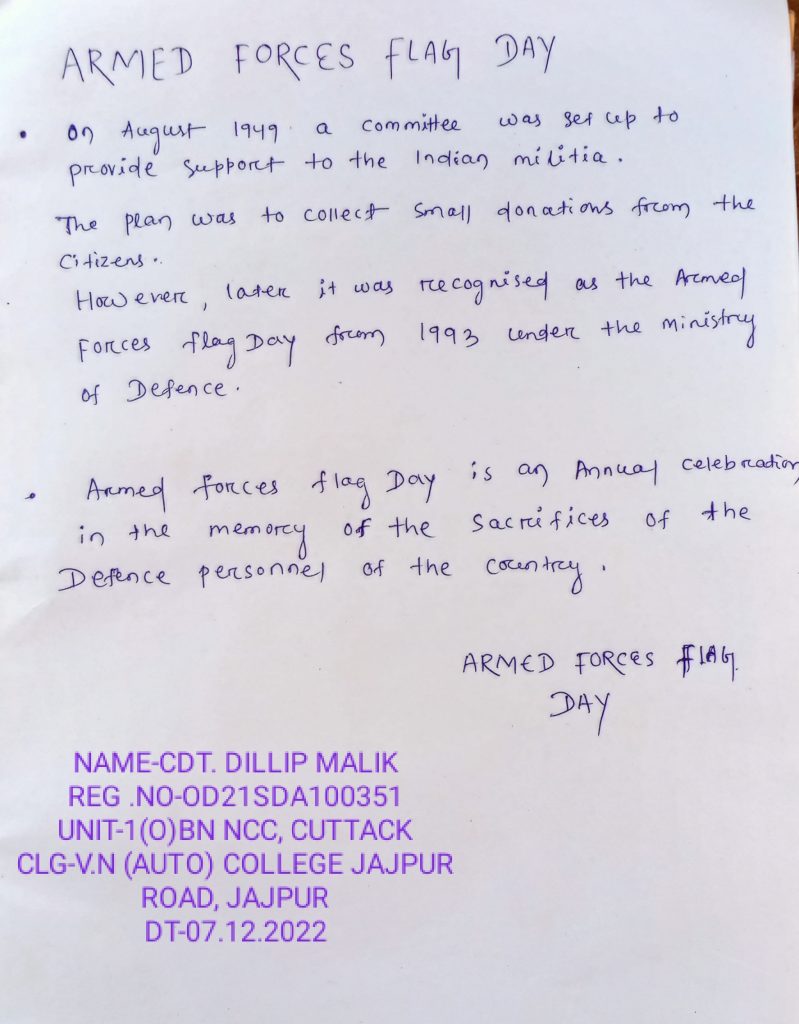 ARMED FORCES FLAG DAY
• On August 1949 a committee was set up to
provide support to the Indian militia.
The plan was to collect small donations from the
citizens..
However, later it was recognised as the Armed
Forces flag Day from 1993 under the ministry
of Defence.
• Armed forces flag Day is an Annual celebration
in the memory of the sacrifices of the
Defence personnel of the country.
ARMED FORCES FLAG.
DAY
NAME-CDT. DILLIP MALIK
REG .NO-OD21SDA100351
UNIT-1(O)BN NCC, CUTTACK
CLG-V.N (AUTO) COLLEGE JAJPUR
ROAD, JAJPUR
DT-07.12.2022